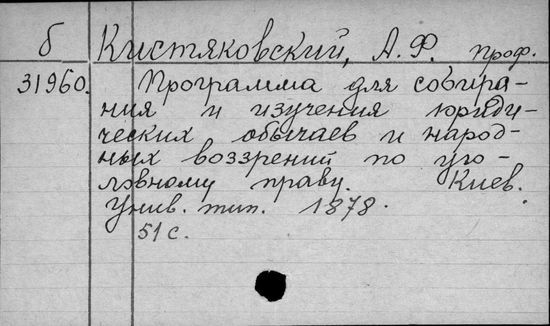 б Кистяковский, А. Ф. проф.
31960. Программа для собира-
ния и изучения юриди-
ческих обычаев и народ-
ных воззрений по уго-
ловному праву. Киев.
Унив. тип. 1878.
51 с.